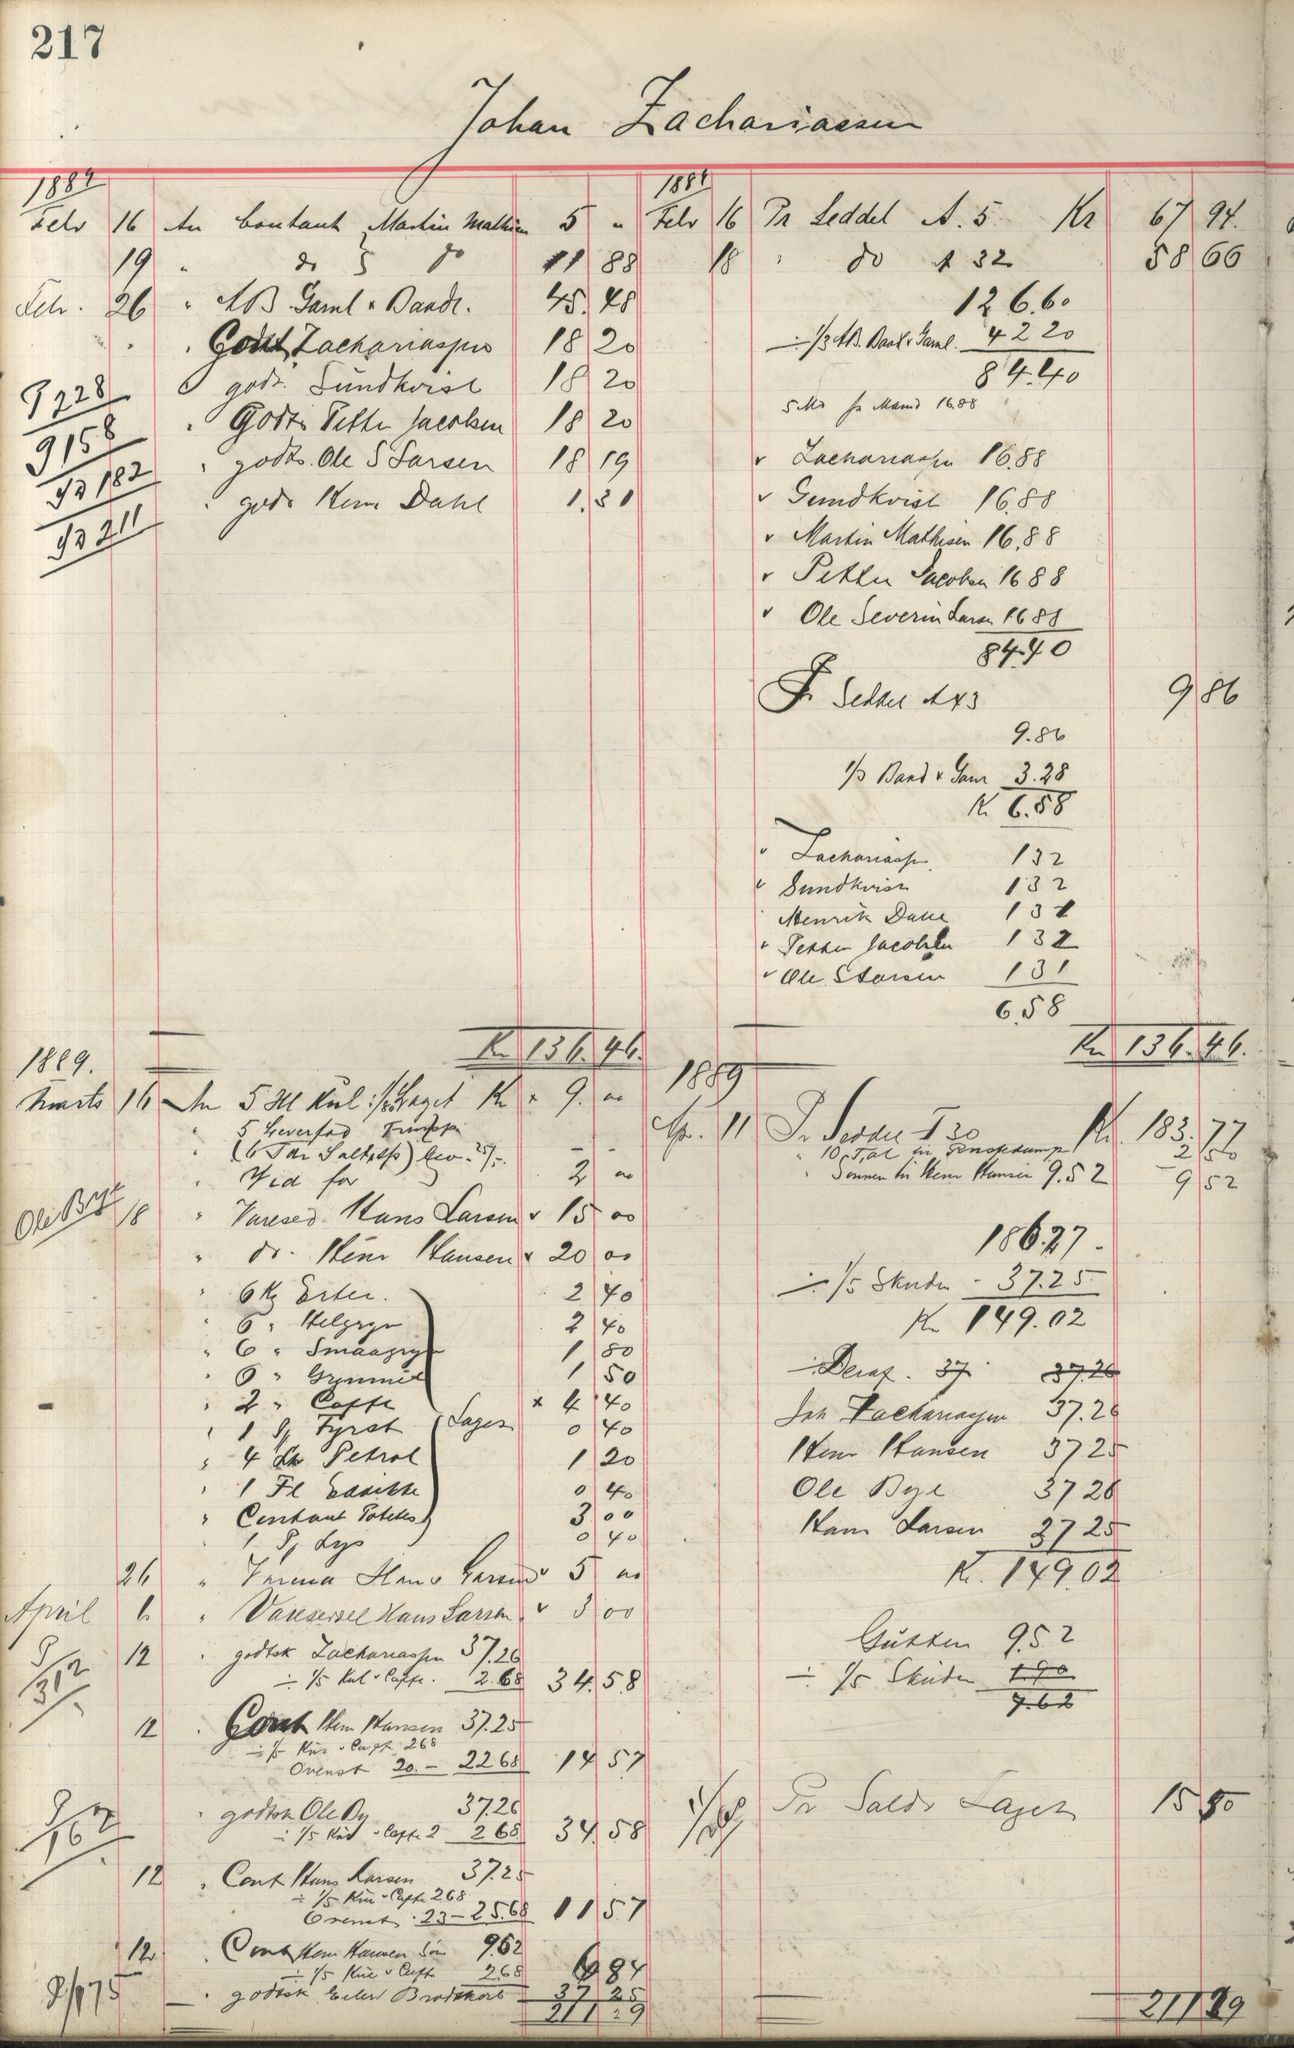 217
Johan Zachariassen
1889
Febr 16 An Contant Martin Mathisen 5 "
19 " do do 11 88
Febr. 26 " AB Garnl & Baadl. 45.48
" " Godts Zachariassen 18 20
godts. Sundkvist 18 20
P 228
" Godts Petter Jacobsen 18 20
P 158
" godts. Ole S Larsen 18 19
182
" gods Henr Dahl 1.31
211
1889
Febr 16 Pr Seddel A. 5 Kr 67 94.
18 " do A 32 58 66
126.60
÷ 1/3 AB. Baadl & Garnl. 42 20
84.40
5 Md pr Mand 16.88
v Zachariassen 16.88
v Sundkvist 16.88
v Martin Mathisen 16.88
v Petter Jacobsen 16 88
v Ole Severin Larsen 16 88
84.40
Pr Seddel A 43 9 86
9.86
1/3 Baad & Garn 3.28
Kr 6.58
v Zachariassen 132
v Sundkvist 132
Henrik Dahl 131
v Petter Jacobsen 132
v Ole S Larsen 131
6.58
Kr 136.46. Kr 136.46.
1889.
Marts 16 An 5 Hl Kul Laget Kr x 9. "
" 5 Leverfad
" (6 Tdr Salt
" Ved for 2 "
Ole Bye
18 " Varesed Hans Larsen v 15 00
" do. Henr Hansen v 20 00
" 6 Kg Erter. 2 40
" 6 " Helgryn 2 40
" 6 " Smaagryn 1 80
" 6 " Grynmel 1 50
" 2 " Caffe x 4 40
" 1 Pk Fyrst Laget 0 40
" 4 Lit Petrol 1 20
" 1 Fl Eddikke 0 40
" Contant Potetes 3 00
" 1 Pk Lys 0 40
26 " Varer Hans Larsen v 5 "
April 6 " Vareseddel Hans Larsen v 3 00
P 312
12 " godtsk Zachariassen 37.26
÷ 1/5 Kul & Caffe. 2.68 34.58
12 " Cont Henr Hansen 37.25
÷ 1/5 Kul & Caffe 268
Ovenst 20.- 22 68 14 57
P 162
" godtsk Ole By 37.26
÷ 1/5 Kul & Caffe 2 68 34.58
12 " Cont Hans Larsen 37.25
÷ 1/5 Kul & Caffe 268
Ovenst. 23 - 25.68 11 57
12 " Cont Henr Hansen Søn 9.52
÷ 1/5 Kul & Caffe 2.68 6 84
P 175
" godtsk Eilert Brodtkorb 37 25
211 29
1889
Ap. 11 Pr Seddel I 30 Kr. 183.77
" 10 2 50
" Sønnen til Henr Hansen 9.52 9 52
186.27
÷ 1/5 Skuden - 37.25
Kr 149.02
Deraf. 37 37.26
Joh Zachariassen 37.26
Henr Hansen 37 25
Ole Bye 37 26
Hans Larsen 37 25
Kr. 149.02
Gutten 9.52
÷ 1/5 Skuden 1 90
7.62
Pr Saldo Laget 15 50
211 29